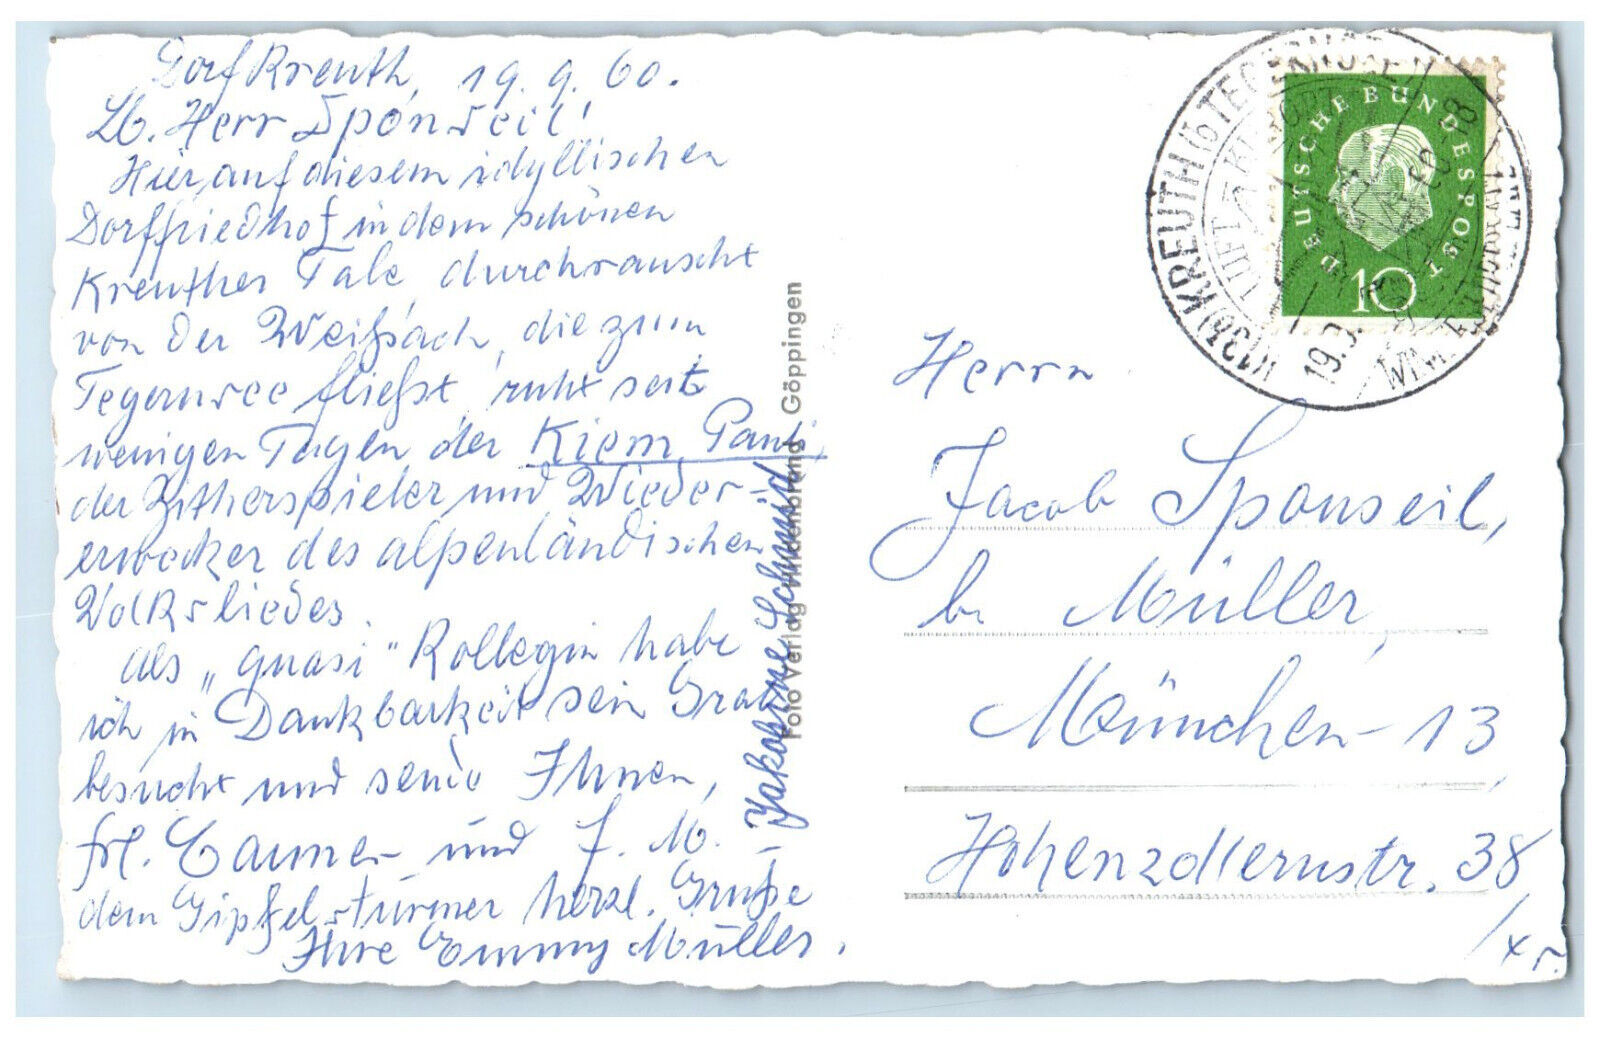 Dorf Kreuth, 19. 9. 60.
Lb. Herr Sponseil!
Hier, auf diesem idyllischen
Dorffriedhof in dem schönen
Kreuther Tale, durchrauscht
von der Weißach, die zum
Tegernsee fließt, ruht seit
wenigen Tagen der Kiem Pauli
der Zitherspieler und Wieder-
erwecker des alpenländischen
Volksliedes.
Als „quasi" Kollegin habe
ich in Dankbarkeit sein Grab
besucht und sende Ihnen,
Frl. und J. M.
dem Gipfelstürmer herzl. Grüße
Ihre Emmy Müller.
Jakobine Schmid
Foto Verlag Hindenbrand Göppingen
(13b) KREUTH (b TEGERNSEE)
LUFTKURORT
19.9.
-18
DEUTSCHE BUNDESPOST
10
Herrn
Jacob Sponseil,
b. Müller,
München-13,
Hohenzollernstr. 38
/x r.